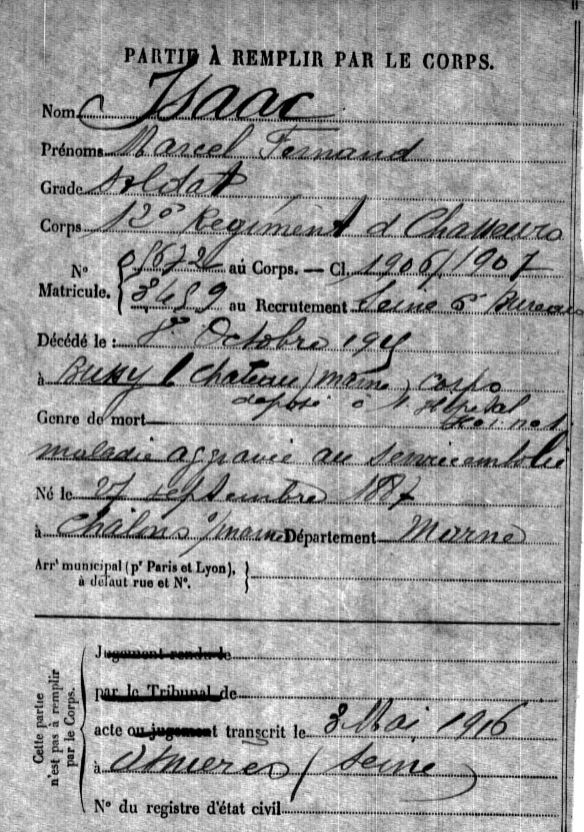 PARTIE À REMPLIR PAR LE CORPS.
Nom Isaac
Prénoms Marcel Fernand
Grade Soldat
Corps 12e Régiment d Chasseurs
N° Matricule. 05672 au Corps. — Cl. 1906/1907
3459 au Recrutement Seine 6e Bureau
Décédé le : 8 Octobre 1915
à Bussy le Chateau (marne) corps
déposé à l'Hôpital
Genre de mort
maladie aggravée au service embolie
Né le 27 septembre 1887
à Châlons s/marne Département Marne
Arrt municipal (pr Paris et Lyon),
à défaut rue et N°.
Cette partie n'est pas à remplir par le Corps.
Jugement rendu le
par le Tribunal de
acte ou jugement transcrit le 3 Mai 1916
à Asnières (Seine)
N° du registre d'état civil